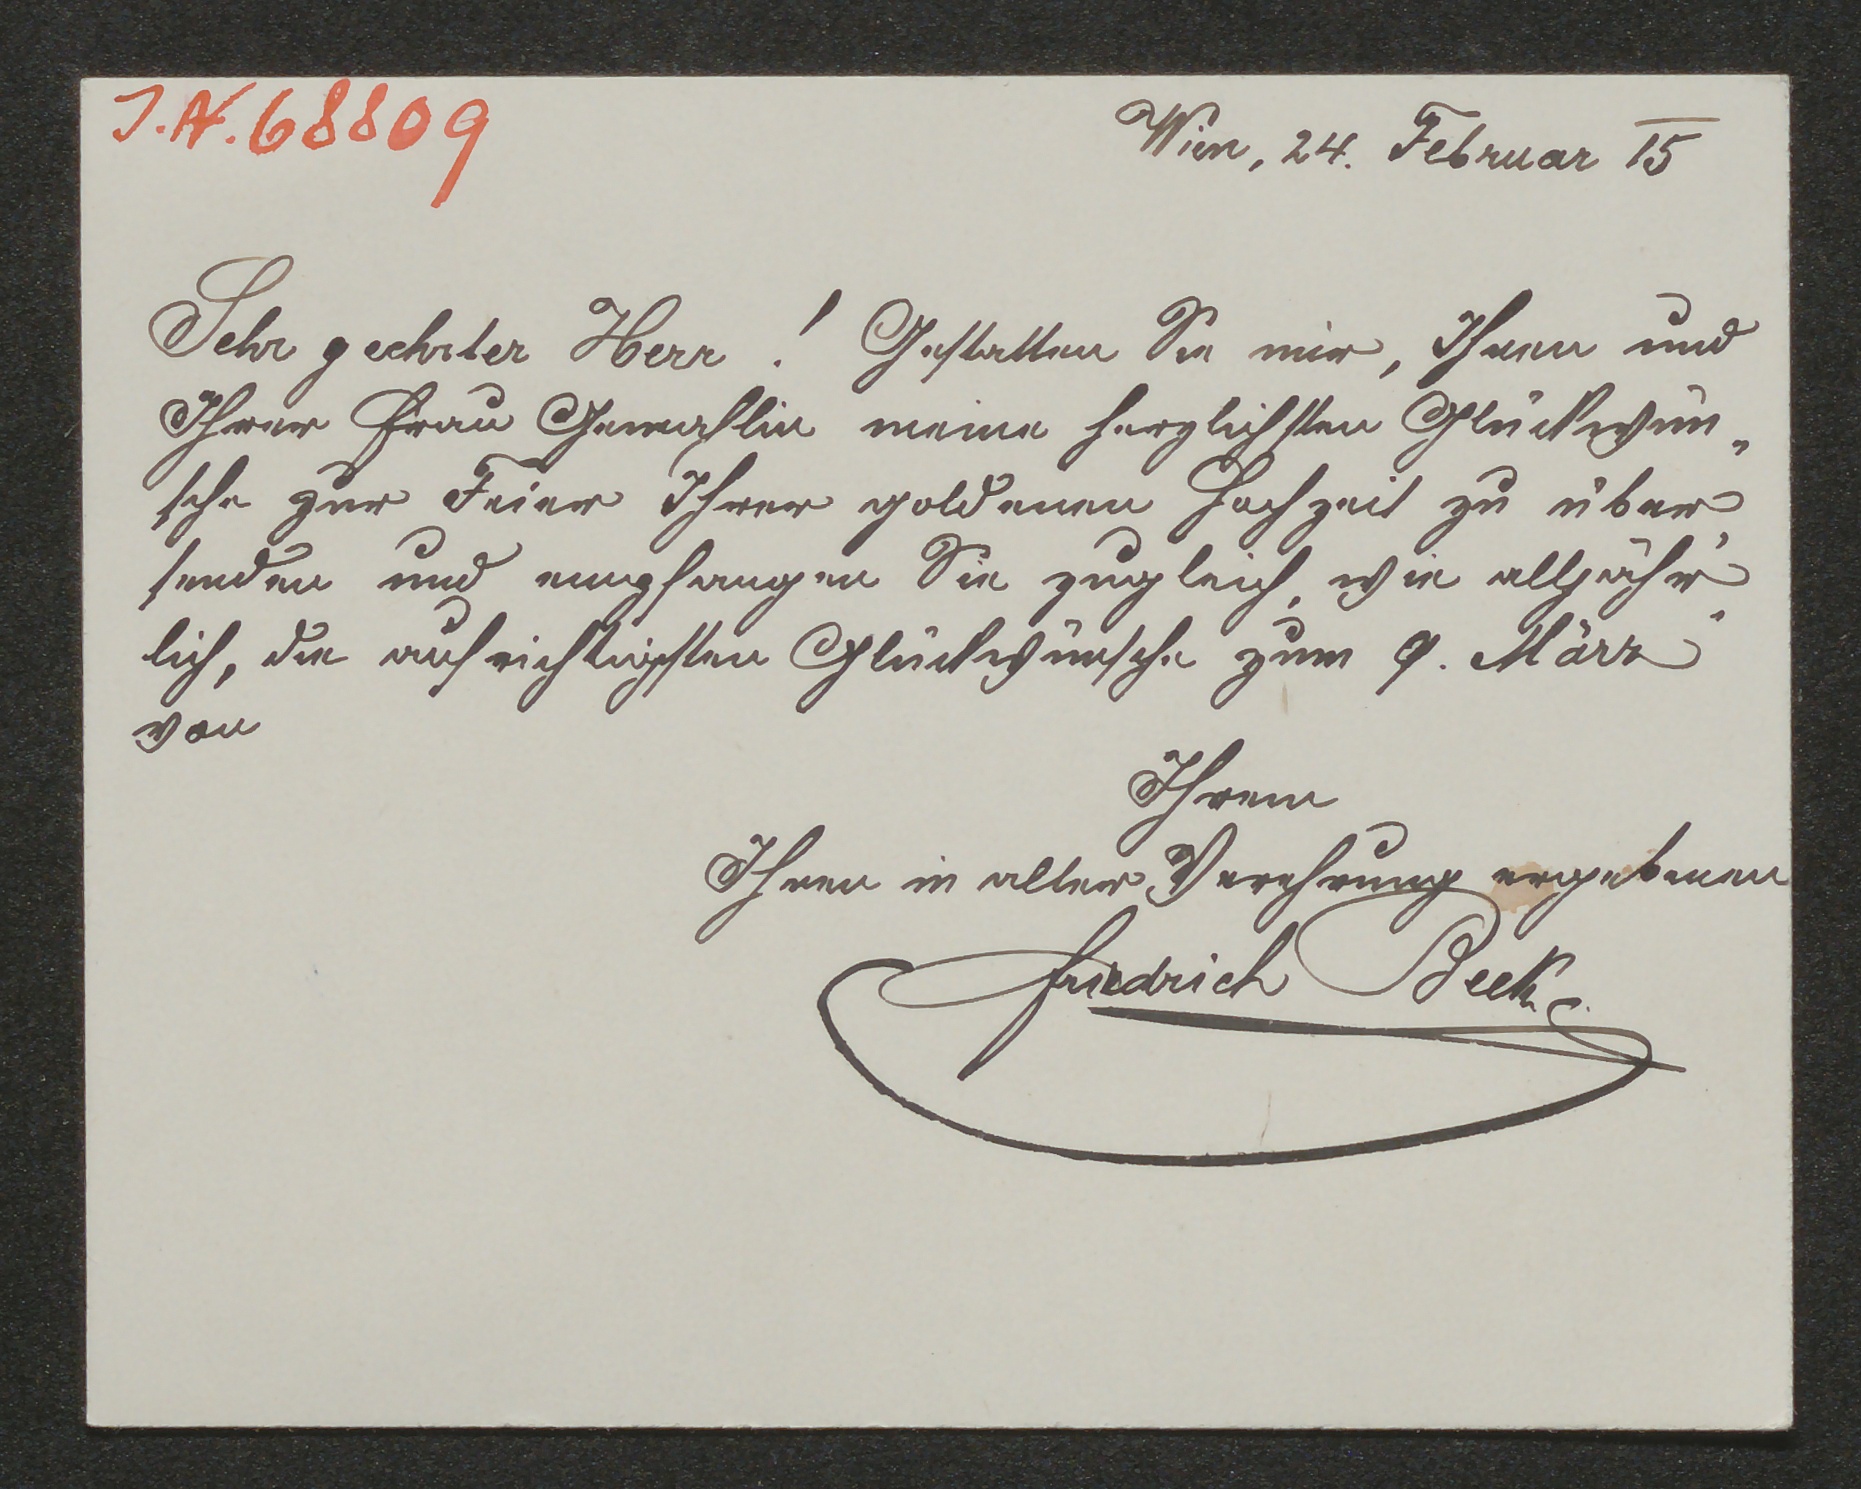 J.N. 68809
Wien, 24. Februar 15
Sehr geehrter Herr! Gestatten Sie mir, Ihnen und
Ihrer Frau Gemahlin meine herzlichsten Glückwün„
sche zur Feier Ihrer goldenen Hochzeit zu über„
senden und empfangen Sie zugleich, wie alljähr„
lich, die aufrichtigsten Glückwünsche zum 9. März
von
Ihrem
Ihnen in alter Verehrung ergebenen
Friedrich Beck